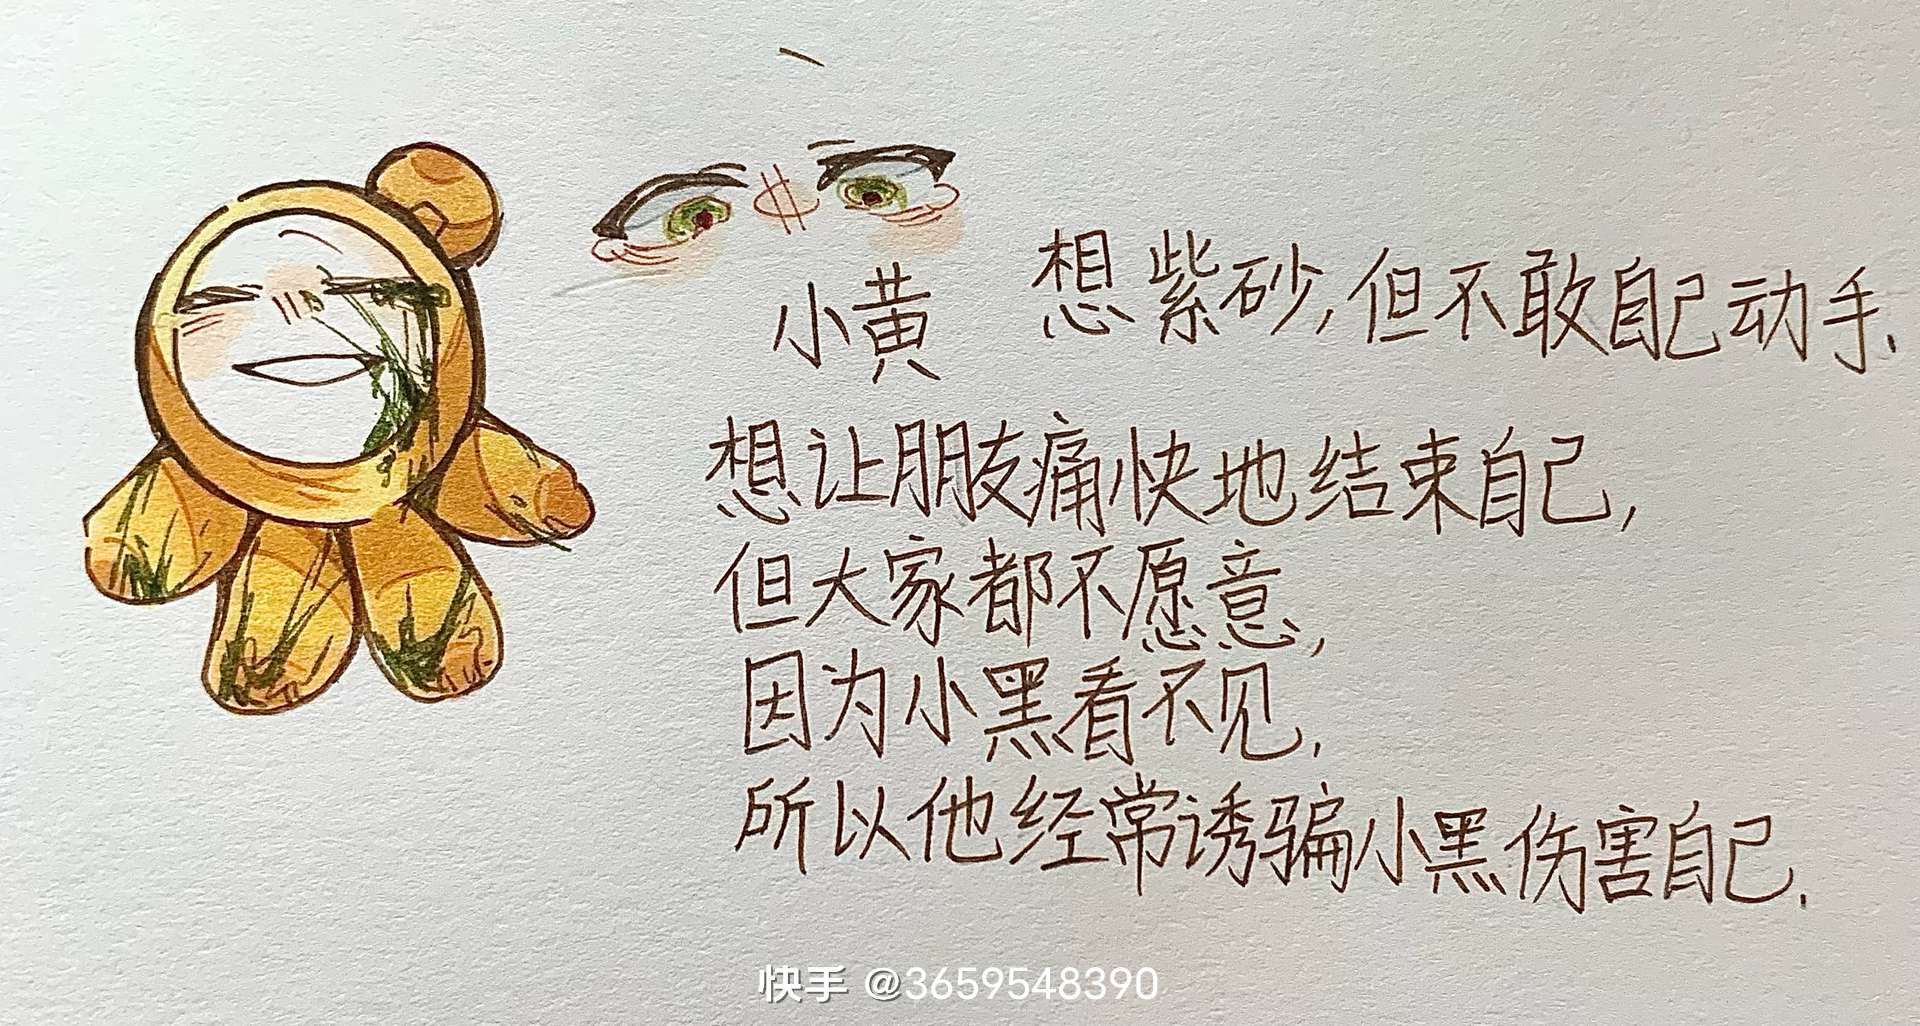 小黄
想紫砂,但不敢自己动手.
想让朋友痛快地结束自己,
但大家都不愿意,
因为小黑看不见.
所以他经常诱骗小黑伤害自己.
快手 @3659548390